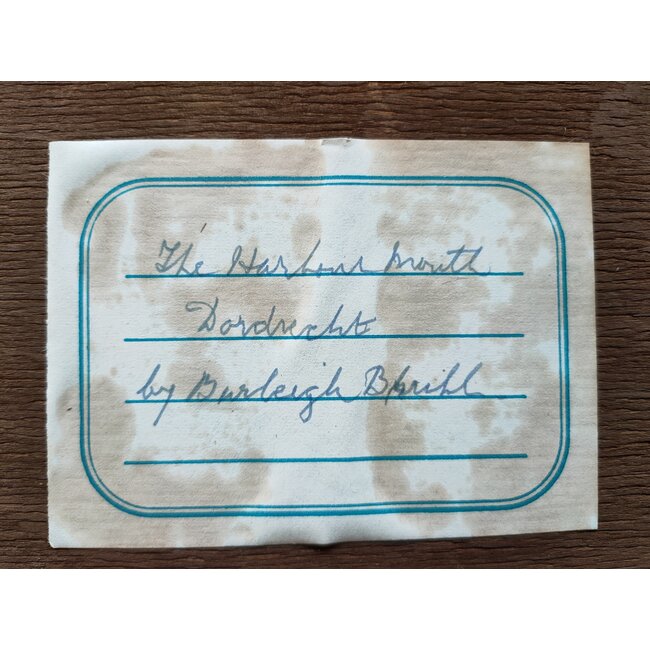 The Harbour Mouth
Dordrecht
by Burleigh Bruhl